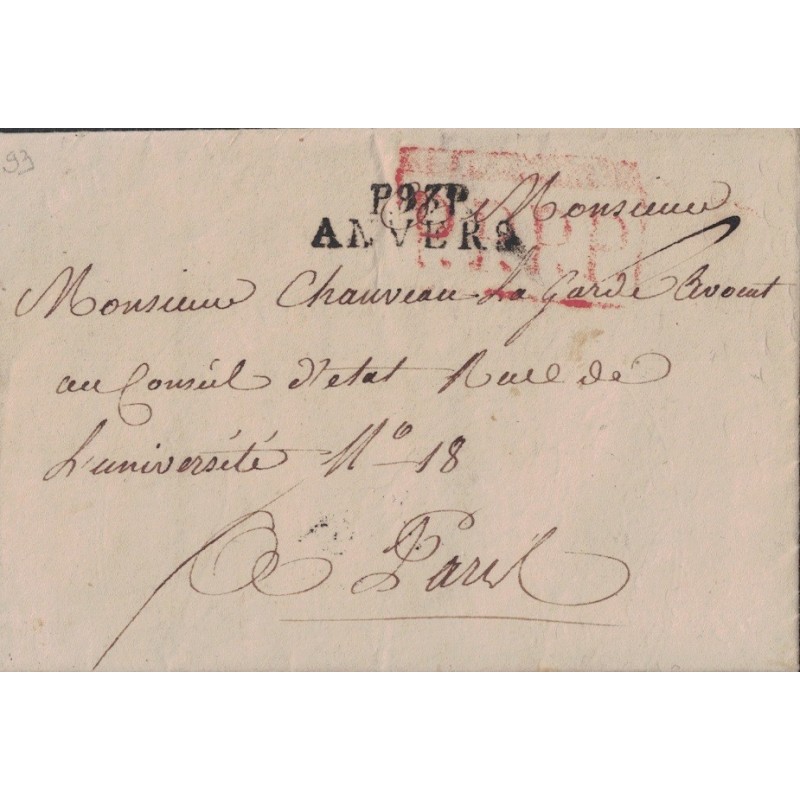 93
P.93.P.
ANVERS
P.P.P.P.
Monsieur
Monsieur Chauveau La Garde Avocat
au Conseil d'etat Rue de
L'université N.o 18
A Paris